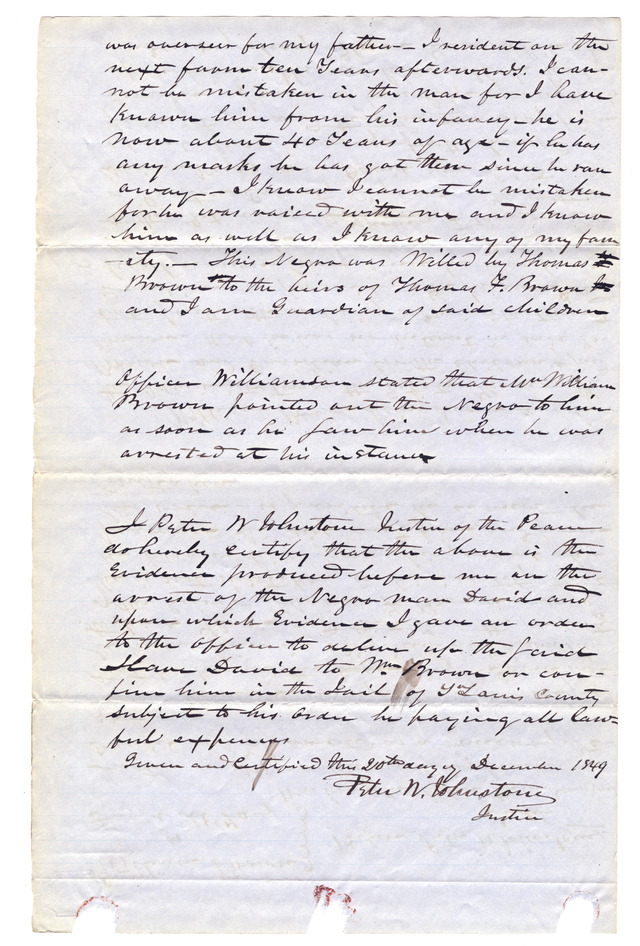 was overseer for my father – I resident on the
next farm ten Years afterwards. I can-
not be mistaken in the man for I have
Known him from his infancy – he is
now about 40 Years of age – if he has
any marks he has got them since he ran
away – I know I cannot be mistaken
for he was raised with me and I know
him as well as I know any of my fam
-ily. – This Negro was Willed by Thomas
Brown to the heirs of Thomas F. Brown
and I am Guardian of said children
Officer Williamson stated that Mr William
Brown pointed out the Negro to him
as soon as he saw him when he was
arrested at his instance
I Peter W Johnstone Justice of the Peace
do hereby certify that the above is the
Evidence produced before me on the
arrest of the Negro man David and
upon which Evidence I gave an order
to the officer to deliver up the said
Slave David to Wm Brown or con-
fine him in the Jail of St Louis County
subject to his order he paying all law-
ful expenses
Given and Certified this 20th day of December 1849
Peter W. Johnstone
Justice